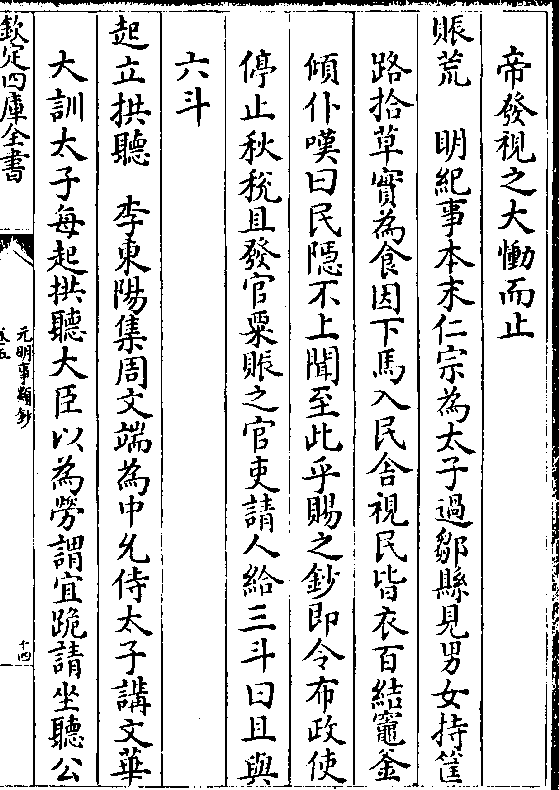 帝發視之大慟而止
賑荒　明紀事本末仁宗為太子過鄒縣見男女持筐
路拾草實為食因下馬入民舍視民皆衣百結竈釜
傾仆嘆曰民隱不上聞至此乎賜之鈔即令布政使
停止秋税且發官粟賑之官吏請人給三斗曰且與
六斗
起立拱聽　李東陽集周文端為中允侍太子講文華
大訓太子每起拱聽大臣以為勞謂宜跪請坐聽公
欽定四庫全書
元明事類鈔
卷五
十四